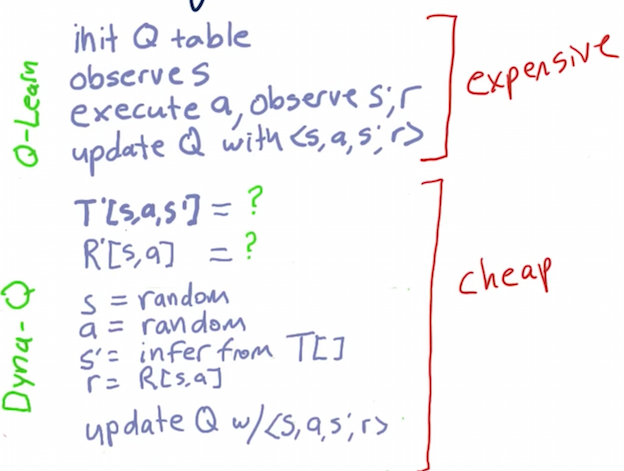 Q-Learn
init Q table
observe s
execute a, observe s', r
update Q with <s, a, s', r>
expensive
Dyna-Q
T'[s,a,s'] = ?
R'[s,a] = ?
s = random
a = random
s' = infer from T[]
r = R[s,a]
update Q w/<s, a, s', r>
cheap